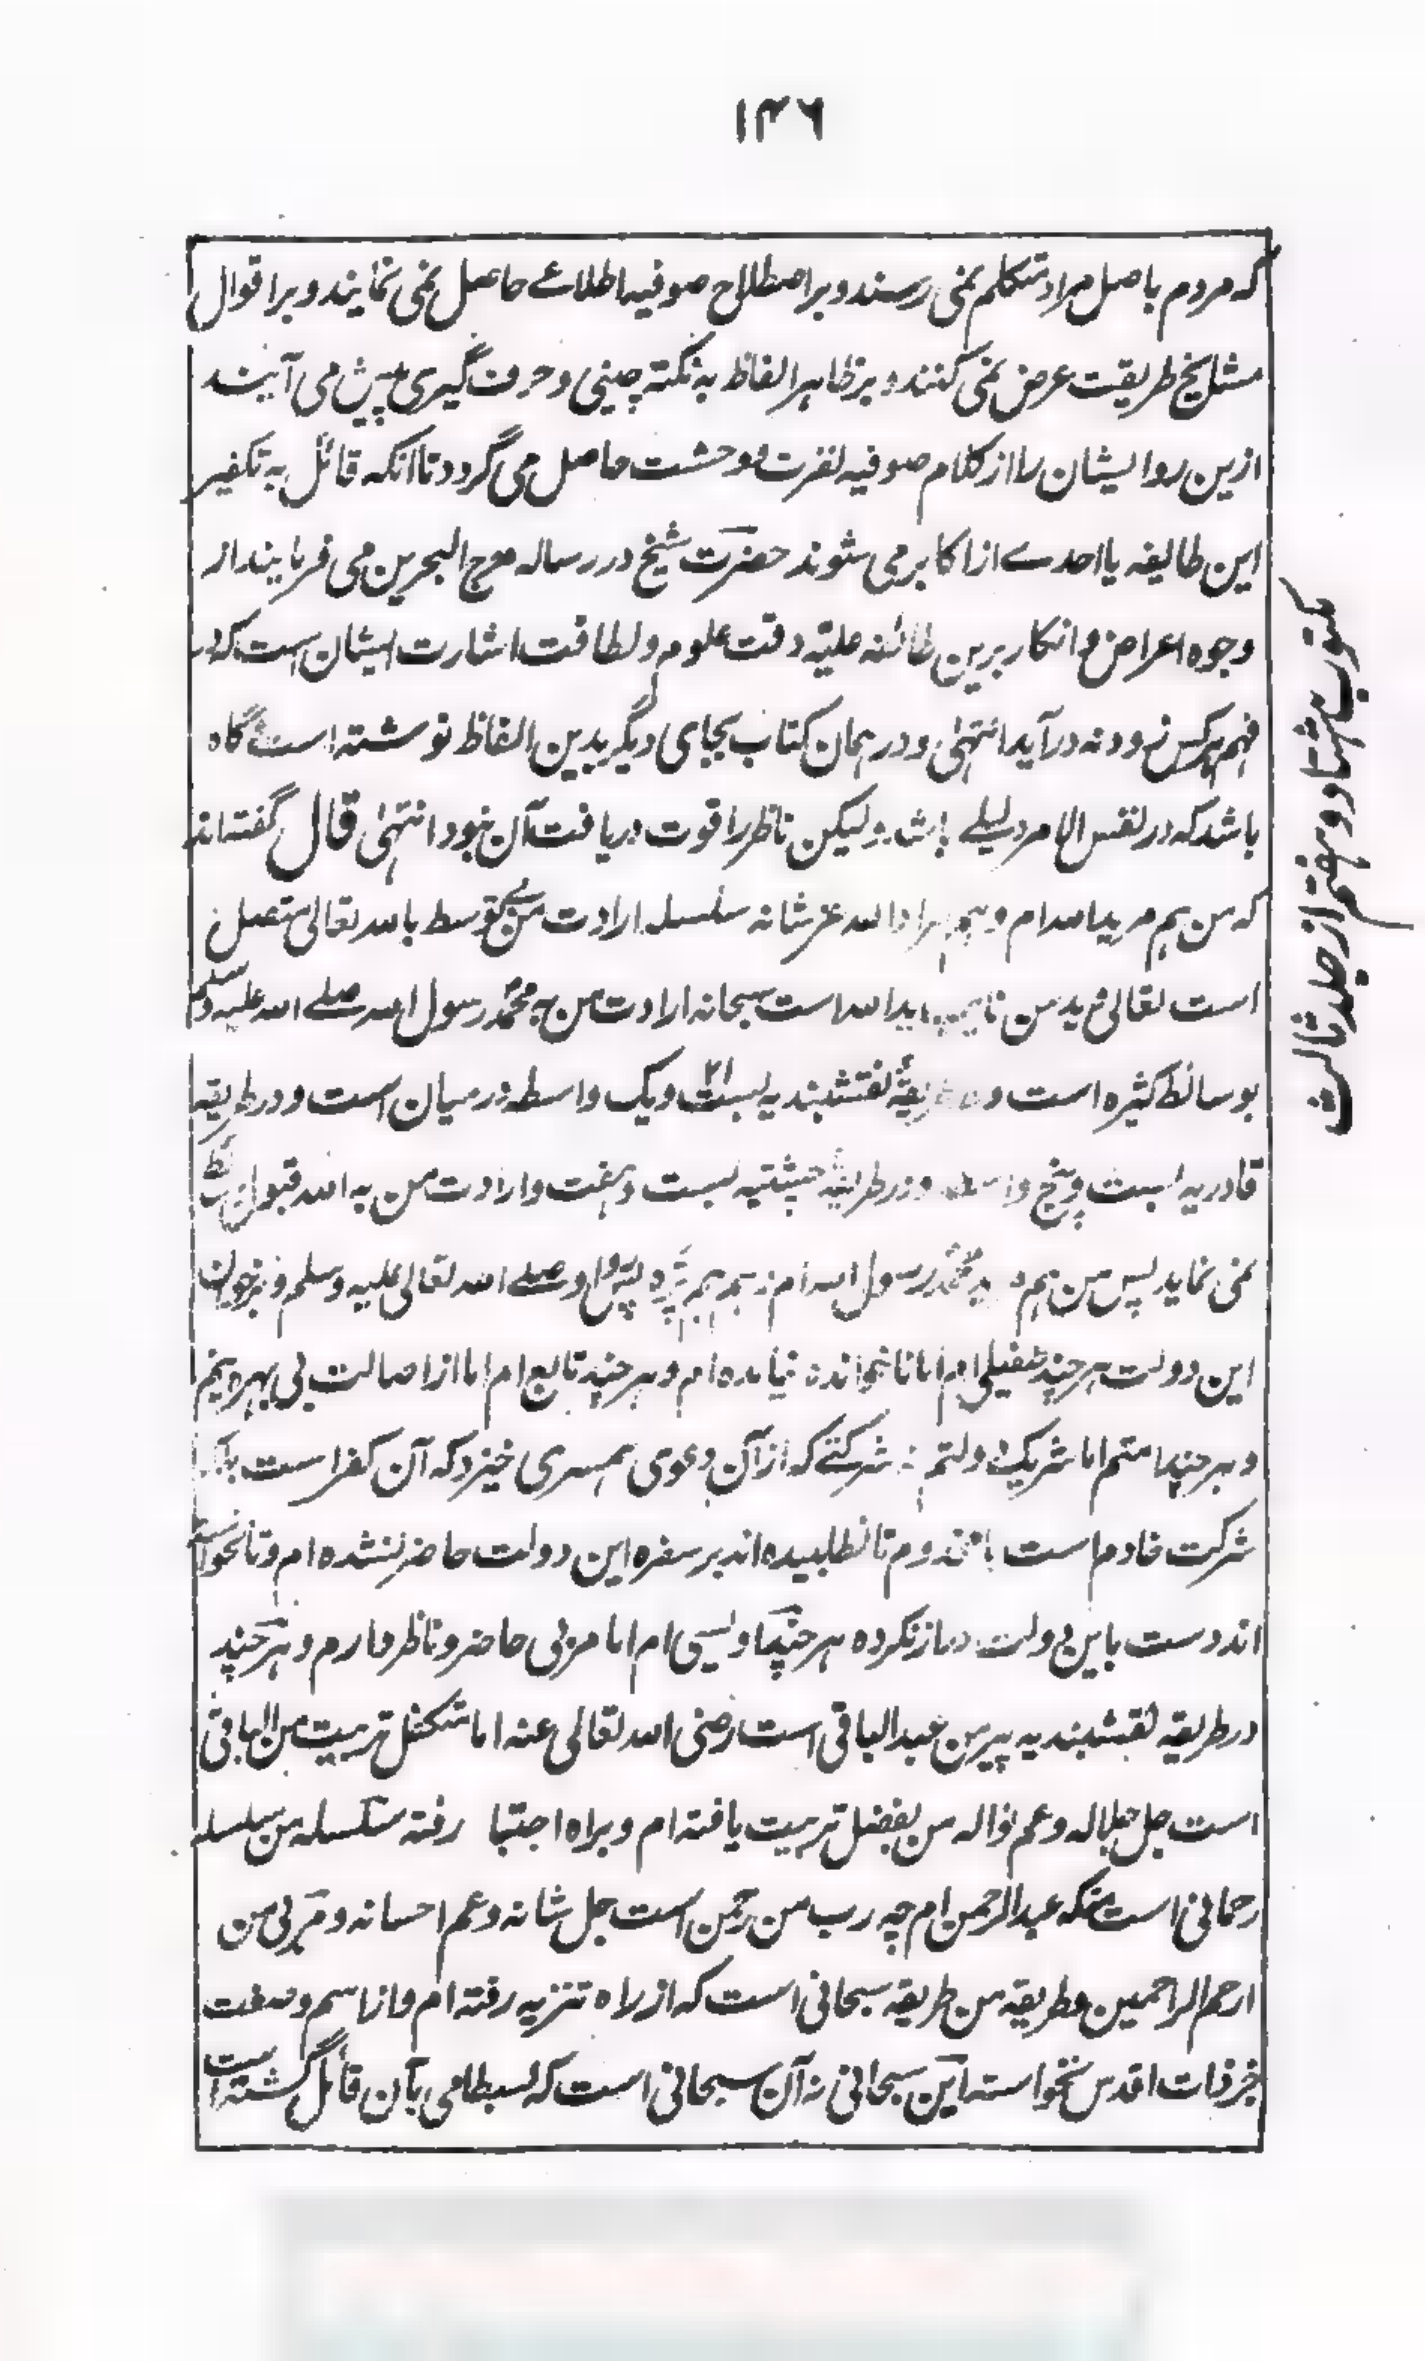 ۱۴۶
که مردم باصل مراد متکلم نمی رسند و بر اصطلاح صوفیه اطلاعے حاصل نمی نمایند و بر اقوال
مشایخ طریقت عرض نمی کنند و بر ظاهر الفاظ به نکته چینی و حرف گیری پیش می آیند
ازین رو ایشان را از کلام صوفیه نفرت و وحشت حاصل می گردد تا آنکه قائل به تکفیر
این طایفه یا احدے از اکابر می شوند حضرت شیخ در رساله مرج البحرین می فرمایند از
وجوه اعراض و انکار برین طائفه علیّه دقت علوم و لطافت اشارت ایشان است که
فهم هرکس زود نه درآید انتهیٰ و در همان کتاب بجای دیگر بدین الفاظ نوشته است گاه
باشد که در نفس الامر دلیلے باشد ولیکن ناظر را قوت دریافت آن نبود انتهیٰ قال گفته اند
که من هم مرید الله ام و هم مراد الله عز شانه سلسله ارادت من بے توسط بالله تعالی متصل
است تعالی و ید من نایب ید الله است سبحانه ارادت من به محمد رسول الله صلے الله علیه وسلم
بوسائط کثیره است و در طریقهٔ نقشبندیه بست ویک واسطه درمیان است و در طریقه
قادریه بست و پنج واسطه و در طریقه چشتیه بست و هفت و ارادت من به الله قبول وسائط
نمی نماید پس من هم مرید محمد رسول الله ام و هم هم پیره پس رو او صلے الله تعالی علیه وسلم و بر خوان
این دولت هر چند طفیلی ام اما ناخوانده نیامده ام و هر چند تابع ام اما از اصالت بی بهره نیم
و هر چند امتم اما شریک دولتم نه شرکتے که از آن دعوی همسری خیزد که آن کفر است بلکه
شرکت خادم است با مخدوم تا نطلبیده اند بر سفره این دولت حاضر نشده ام و تا نخواسته
اند دست باین دولت دراز نکرده هر چند اویسی ام اما مربی حاضر و ناظر دارم و هر چند
در طریقه نقشبندیه پیر من عبد الباقی است رضی الله تعالی عنه اما متکفل تربیت من الباقی
است جل جلاله و عم نواله من بفضل تربیت یافته ام و براه اجتبا رفته سلسله من سلسله
رحمانی است منکه عبد الرحمن ام چه رب من رحمن است جل شانه و عم احسانه و مربی من
ارحم الراحمین و طریقه من طریقه سبحانی است که از راه تنزیه رفته ام و از اسم و صفت
جز ذات اقدس نخواسته این سبحانی نه آن سبحانی است که بسطامی بآن قائل گشته است
مکتوب هشتاد و هفتم از جلد ثالث